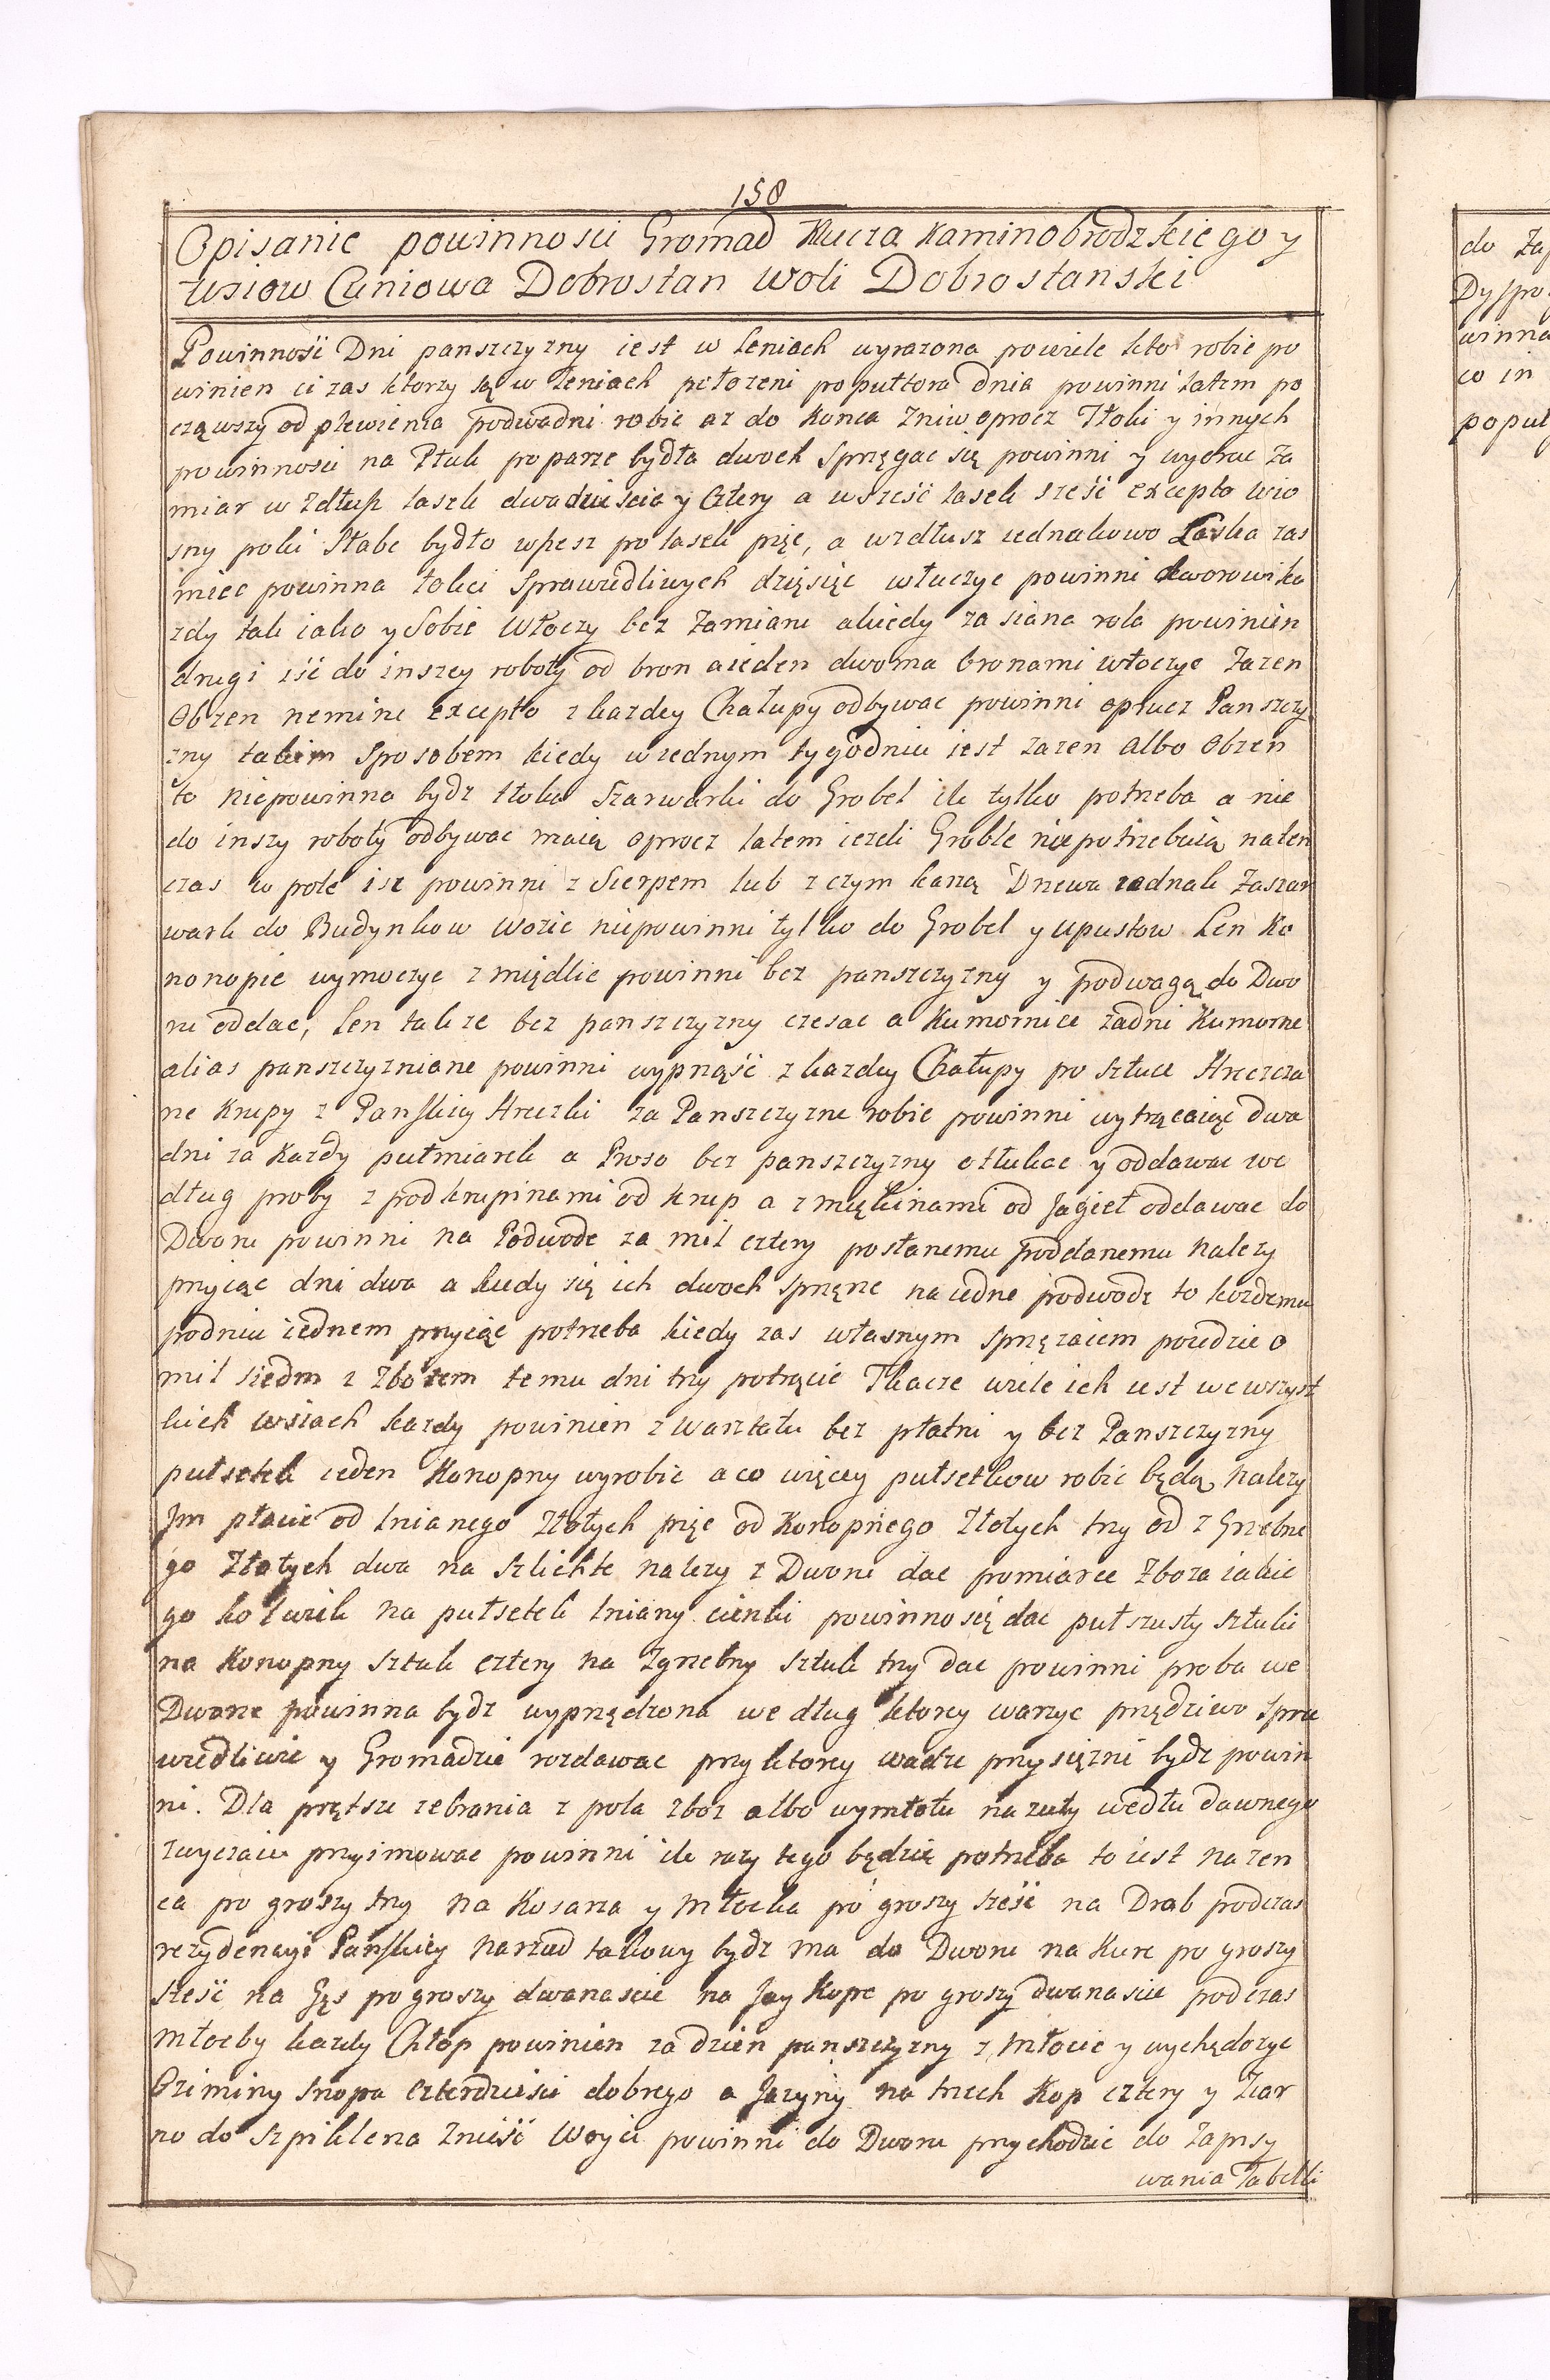 158
Opisanie powinnosci Gromad Klucza Kaminobrodzkiego y
Wsiow Cuniowa Dobrostan Woli Dobrostanski
Powinność Dni panszczyzny iest w leniach wyrazona powiele kto robic po
winien ci zas ktorzy są w leniach położeni po pułtora dnia powinni latem po
cząwszy od plewienia podwadni robic az do Konca Zniw oprocz Tłoki y innych
powinnosci na Pług po parze bydła dwoch Sprzęgac się powinni y wyorac Za
miar w zdłuz lasek dwadziescia y Cztery a wszesć lasek szesć excepto wio
sny poki Słabe bydło wpesz po lasek pięc, a wzdłusz iednakowo Laska zas
miec powinna łokci Sprawiedliwych dziesięc włuczyc powinni dworowi ka
zdy tak iako y Sobie Włoczy bez Zamiaru a kiedy za siana rola powinien
drugi iść do inszey roboty od bron a ieden dwoma bronami włoczyc Zazen
Obzen nemine excepto z kazdey Chałupy odbywac powinni oprucz Panszczy
zny takim Sposobem kiedy w iednym tygodniu iest zazen albo Obzen
to niepowinna bydz tłoka Szarwarki do Grobel ile tylko potrzeba a nie
do inszy roboty odbywac maią oprocz latem iezeli Groble niepotrzebuią naten
czas w pole isc powinni z Sierpem lub z czym kazą Drzewa iednak Zaszar
wark do Budynkow wozic niepowinni tylko do Grobel y upustow Len Ko
nonopie wymoczyc zmiędlic powinni bez panszczyzny y podwagą do Dwo
ru oddac, len takze bez panszczyzny czesac a Kumornice zadni Kumorne
alias panszczyzniane powinni wypraść z kazdey Chałupy po sztuce Hreczcza
ne Krupy z Panskiey Hreczki za Panszczyzne robic powinni wytrącaiąc dwa
dni za Kazdy pułmiarek a Proso bez panszczyzny otłukac y oddawac we
dług proby z podkrupinami od krup a z miękinami od Jagieł oddawac do
Dworu powinni na Podwode za mil cztery posłanemu poddanemu nalezy
przyiąc dni dwa a kiedy się ich dwoch sprzęze na iedne podwodę to kozdemu
podniu iednem przyiąc potrzeba kiedy zas własnym sprzęzaiem poiedzie o
mil siedm z Zbozem temu dni trzy potrącic Tkacze wiele ich iest we wszyst
kich wsiach kazdy powinien z wartatu bez płatni y bez Panszczyzny
pułsetek ieden Konopny wyrobic a co więcey pułsetkow robic będą Nalezy
Jm płacic od lnianego Złotych pięc od Konopnego Złotych trzy od z Grzebne
go Złotych dwa na szlichte nalezy z Dworu dac pomiarce Zboza iakie
go kolwiek na pułsetek lniany cienki powinno się dac puł szosty sztuki
na Konopny sztuk cztery na Zgrzebny sztuk trzy dac powinni proba we
Dworze powinna bydz wyprzędzona we dług ktorey warzyc przędziwo spra
wiedliwie y Gromadzie rozdawac przy ktorey wadze przysięzni bydz powin
ni. Dla prętsze zebrania z pola zboz albo wymłotu nazuty wedłu dawnego
zwyczaiu przyimowac powinni ile razy tego będzie potrzeba to iest nazen
ca po groszy trzy na Kosarza y młocka po groszy szesć na Drab podczas
rezydencyi Panskiey narzud takowy bydz ma do Dworu na Kure po groszy
szesć na Gęs po groszy dwanascie na Jay Kope po groszy dwanascie podczas
młocby kazdy Chłop powinien za dzien panszczyzny z młocic y wychędozyc
Oziminy snopa czterdziesci dobrego a Jarzyny na trzech Kop cztery y Ziar
no do szpiklerza Znieść Woyci powinni do Dworu przychodzic do Zapisy
wania Tabelli
do Zap
Dyspo
winna
co in
poput